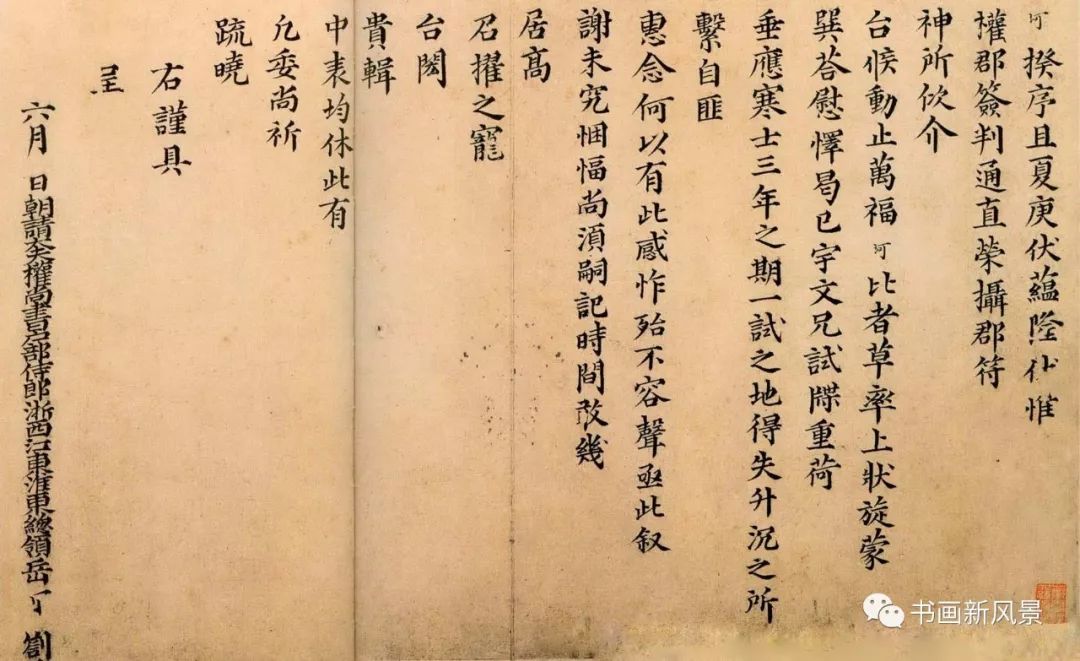 珂 揆序且夏庚伏蘊隆仆惟
權郡簽判通直榮攝郡符
神所佽介
台候動止萬福珂比者草率上狀旋蒙
巽荅慰懌曷已宇文兄試牒重荷
垂應寒士三年之期一試之地得失升沉之所
繫自匪
惠念何以有此感怍殆不容聲亟此叙
謝未究悃愊尚須嗣記時間敢幾
居高
召擢之寵
台閤
貴輯
中表均休此有
凢委尚祈
疏曉
右謹具
呈
六月 日朝請大夫權尚書戶部侍郎淮西江東淮東總領岳 珂 劄
书画新风景